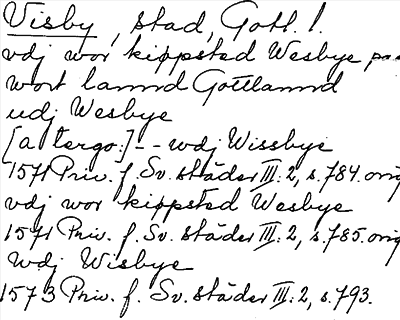 Visby, stad, Gotl. l.
vdj wor kippsted Wesbye paa
wort lannd Gottlannd
udj Wesbye
[a tergo:] -- wdj Wissbye
1571 Priv. f. Sv. städer III: 2, s. 784. orig
vdj wor kippsted Wesbye
1571 Priv. f. Sv. städer III: 2, s. 785. orig
wdj Wisbye
1573 Priv. f. Sv. städer III: 2, s. 793.